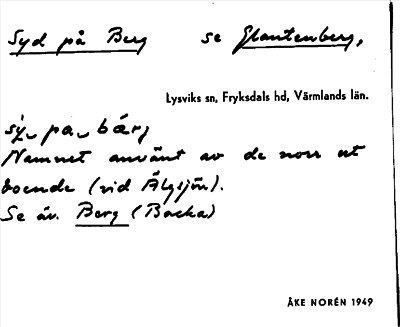 Syd på Berg se Glantenberg,
Lysviks sn, Fryksdals hd, Värmlands län.
sy̆ pa bärj
Namnet använt av de norr ut
boende (vid Älgsjön).
Se äv. Berg (Backa)
ÅKE NORÉN 1949